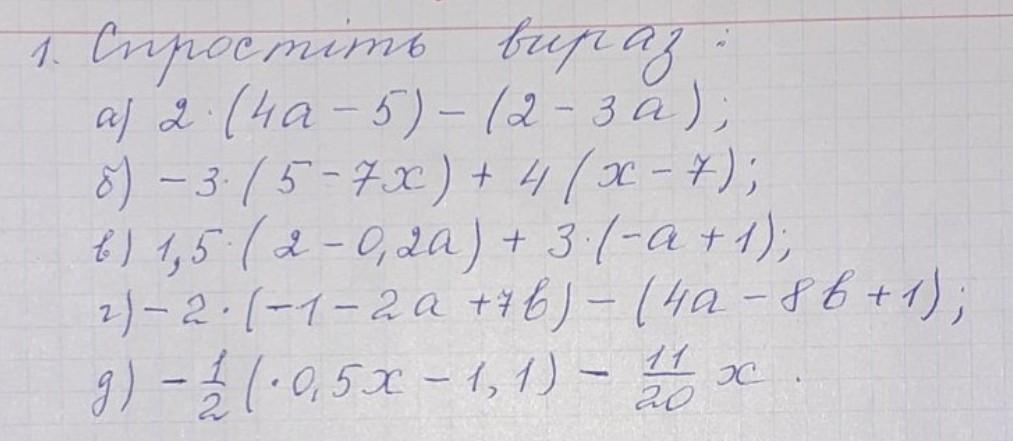 1. Спростіть вираз:
а) 2·(4a-5)-(2-3a);
б) -3·(5-7x)+4(x-7);
в) 1,5·(2-0,2a)+3·(-a+1);
г) -2·(-1-2a+7b)-(4a-8b+1);
д) -1/2(·0,5x-1,1)-11/20 x.